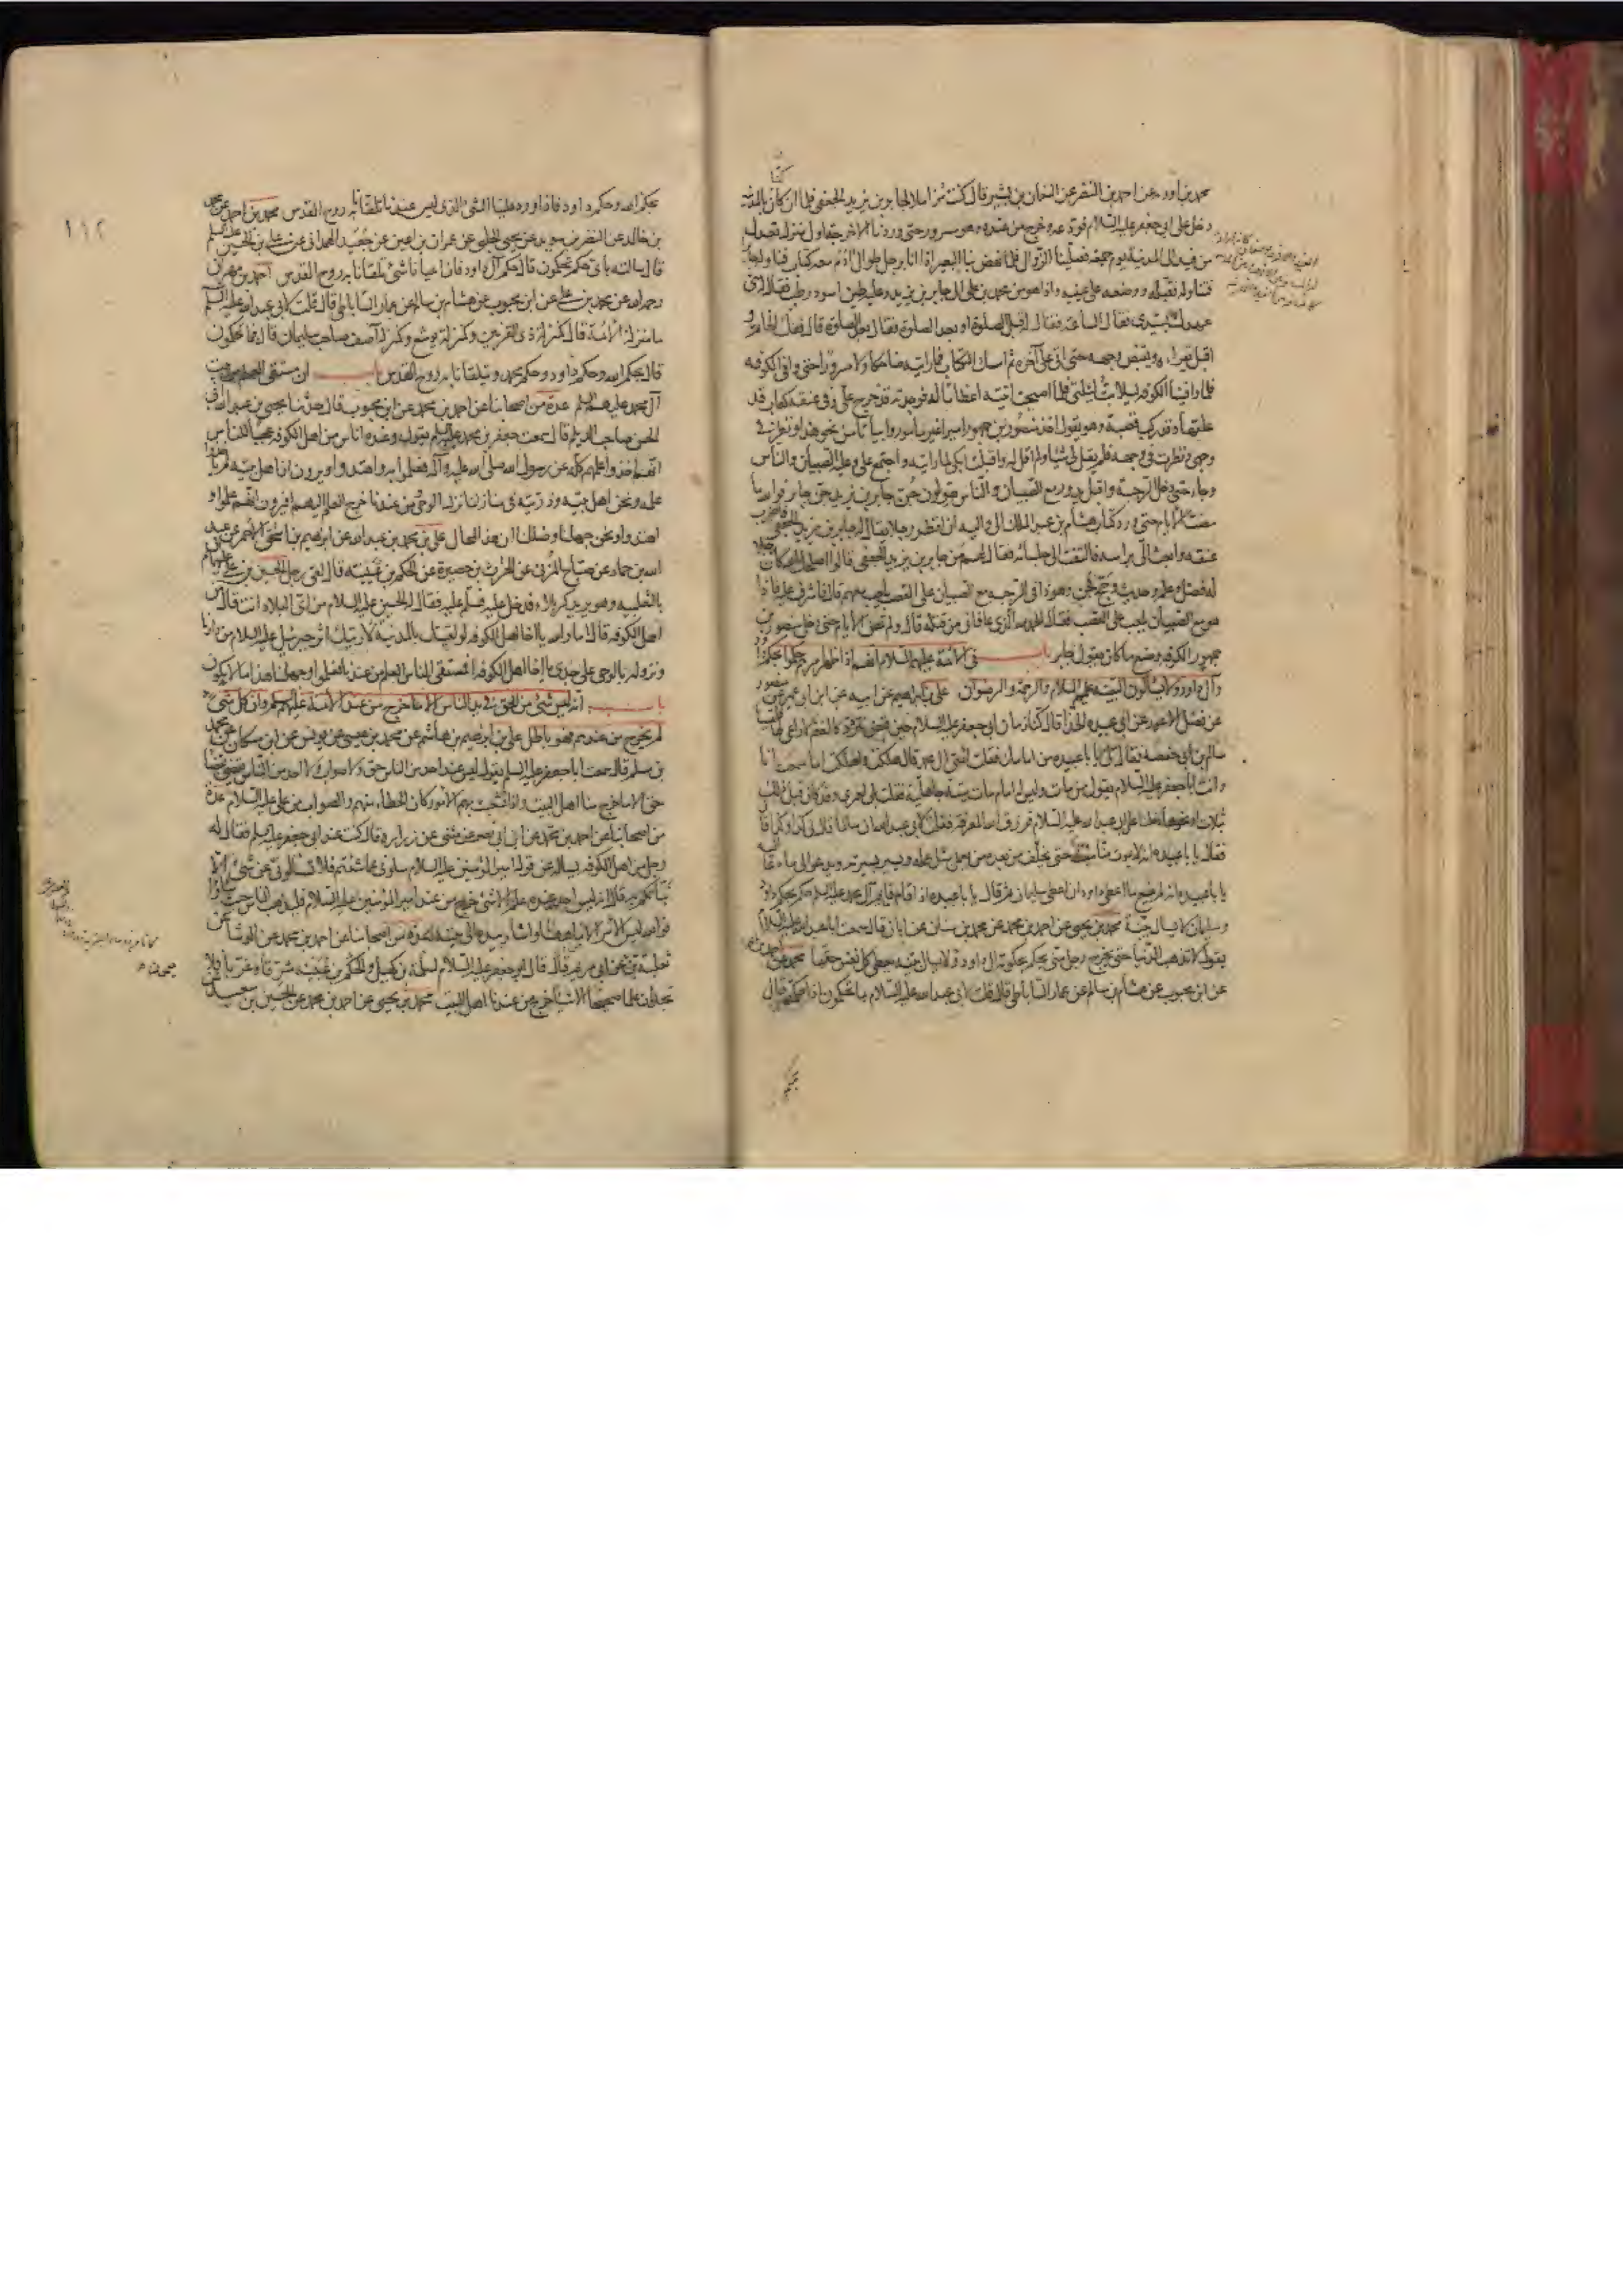 محمد بن اورمه عن احمد بن النضر عن النعمان بن بشير قال كنت مزاملا لجابر بن يزيد الجعفى فلما ان كنا بالمدينة
دخل على ابى جعفر عليه السلام فودعه وخرج من عنده وهو مسرور حتى وردنا الاخرجة اول منزل تعدل
من فيد الى المدينة يوم جمعة فصلينا الزوال فلما نهض بنا البعير اذا انا برجل طوال ادم معه كتاب فناوله جابرا
فتناوله فقبله ووضعه على عينيه واذا هو من محمد بن على الى جابر بن يزيد وعليه طين اسود رطب فقال له متى
عهدك بسيدى فقال الساعة فقال له قبل الصلوة او بعد الصلوة فقال بعد الصلوة قال ففك الخاتم و
اقبل يقرأه ويقبض وجهه حتى اتى على آخره ثم امسك الكتاب فما رايته ضاحكا ولا مسرورا حتى وافى الكوفه
فلما وافينا الكوفه ليلا بت ليلتى فلما اصبحت اتيته اعظاما له فوجدته قد خرج على وفى عنقه كعاب قد
علقها وقد ركب قصبة وهو يقول اجد منصور بن جمهور اميرا غير مأمور وابياتا من نحو هذا فنظر فى
وجهى ونظرت فى وجهه فلم يقل لى شيئا ولم اقل له واقبلت ابكى لما رايته واجتمع على وعليه الصبيان والناس
وجاء حتى دخل الرحبة واقبل يدور مع الصبيان والناس يقولون جن جابر بن يزيد جن جابر فوالله ما
مضت الايام حتى ورد كتاب هشام بن عبد الملك الى واليه ان انظر رجلا يقال له جابر بن يزيد الجعفى فاضرب
عنقه وابعث الى براسه فالتفت الى جلسائه فقال لهم من جابر بن يزيد الجعفى قالوا اصلحك الله كان رجلا
له فضل وعلم وحديث وحج فجن وهو ذا فى الرحبة مع الصبيان على القصب يلعب معهم قال فاشرف عليه فاذا
هو مع الصبيان يلعب على القصب فقال الحمد لله الذى عافانى من قتله قال ولم تمض الايام حتى دخل منصور بن
جمهور الكوفه وصنع ما كان يقول جابر باب فى الائمة عليهم السلام انهم اذا ظهر امرهم حكموا بحكم داود
وآل داود ولا يسألون البينة عليهم السلام والرحمة والرضوان على بن ابراهيم عن ابيه عن ابن ابى عمير عن منصور
عن فضل الاعور عن ابى عبيده الحذا قال كنا زمان ابى جعفر عليه السلام حين قبض نتردد كالغنم لا راعى لها فلقينا
سالم بن ابى حفصة فقال لى يا با عبيده من امامك فقلت ائمتى آل محمد فقال هلكت واهلكت اما سمعت انا
وانت ابا جعفر عليه السلام يقول من مات وليس له امام مات ميتة جاهلية فقلت بلى لعمرى وقد كان قبل ذلك
بثلاث او نحوها دخلنا على ابى عبد الله عليه السلام فرزق الله المعرفة فقلت لابى عبد الله ان سالما قال لى كذا وكذا قال
فقال يا با عبيده انه لا يموت منا ميت حتى يخلف من بعده من يعمل بمثل عمله ويسير بسيرته ويدعو الى ما دعا اليه
يا با عبيده انه لم يمنع ما اعطى داود ان اعطى سليمان ثم قال يا با عبيده اذا قام قايم آل محمد عليه السلم حكم بحكم داود
وسليمان لا يسال بينة محمد بن يحيى عن احمد بن محمد عن محمد بن سنان عن ابان قال سمعت ابا عبد الله عليه السلام
يقول لا تذهب الدنيا حتى يخرج رجل منى يحكم بحكومة آل داود ولا يسال بينة يعطى كل نفس حقها محمد عن احمد بن محمد
عن ابن محبوب عن هشام بن سالم عن عمار الساباطى قال قلت لابى عبد الله عليه السلام بما تحكمون اذا حكمتم قال
بحكم
١١٢
بحكم الله وحكم داود فاذا ورد علينا الشئ الذى ليس عندنا تلقانا به روح القدس محمد بن احمد عن محمد
بن خالد عن النضر بن سويد عن يحيى الحلبى عن عمران بن اعين عن جعيد الهمدانى عن على بن الحسين عليه السلم
قال سالته باى حكم تحكمون قال حكم آل داود فان اعيانا شئ تلقانا به روح القدس احمد بن مهران
رحمه الله عن محمد بن على عن ابن محبوب عن هشام بن سالم عن عمار الساباطى قال قلت لابى عبد الله عليه السلم
ما منزلة الائمة قال كمنزلة ذى القرنين وكمنزلة يوشع وكمنزلة آصف صاحب سليمان قال فبما تحكمون
قال بحكم الله وحكم داود وحكم محمد ويتلقانا به روح القدس باب ان مستقى العلم من بيت
آل محمد عليهم السلم عدة من اصحابنا عن احمد بن محمد عن ابن محبوب قال حدثنا يحيى بن عبد الله ابى
الحسن صاحب الديلم قال سمعت جعفر بن محمد عليه السلم يقول وعنده اناس من اهل الكوفه عجبا للناس
انهم اخذوا علمهم كله عن رسول الله صلى الله عليه وآله فعملوا به واهتدوا ويرون ان اهل بيته لم ياخذوا
علمه ونحن اهل بيته وذريته فى منازلنا نزل الوحى ومن عندنا خرج العلم اليهم افيرون انهم علموا و
اهتدوا ونحن جهلنا وضللنا ان هذا لمحال على بن محمد بن عبد الله عن ابراهيم بن اسحق الاحمر عن عبد
الله بن حماد عن صباح المزنى عن الحارث بن حصيرة عن الحكم بن عتيبه قال لقى رجل الحسين بن على عليهما السلام
بالثعلبيه وهو يريد كربلاء فدخل عليه فسلم عليه فقال له الحسين عليه السلام من اى البلاد انت قال من
اهل الكوفه قال اما والله يا اخا اهل الكوفه لو لقيتك بالمدينة لاريتك اثر جبرئيل عليه السلام من دارنا
ونزوله بالوحى على جدى يا اخا اهل الكوفه افمستقى الناس العلم من عندنا فعلموا وجهلنا هذا ما لا يكون
باب انه ليس شئ من الحق فى يد الناس الا ما خرج من عند الائمة عليهم السلم وان كل شئ
لم يخرج من عندهم فهو باطل على بن ابراهيم بن هاشم عن محمد بن عيسى عن يونس عن ابن مسكان عن محمد
بن مسلم قال سمعت ابا جعفر عليه السلم يقول ليس عند احد من الناس حق ولا صواب ولا احد من الناس يقضى بقضاء
حق الا ما خرج منا اهل البيت واذا تشعبت بهم الامور كان الخطاء منهم والصواب من على عليه السلام عدة
من اصحابنا عن احمد بن محمد عن ابن ابى نصر عن مثنى عن زراره قال كنت عند ابى جعفر عليه السلم فقال له
رجل من اهل الكوفه يساله عن قول امير المؤمنين عليه السلام سلونى عما شئتم فلا تسالونى عن شئ الا
انبأتكم به قال انه ليس احد عنده علم الا شئ خرج من عند امير المؤمنين عليه السلام فليذهب الناس حيث شاؤا
فوالله ليس الامر الا من هاهنا واشار بيده الى بيته عدة من اصحابنا عن احمد بن محمد عن الوشا عن
ثعلبة بن عن ابى مريم قال قال ابو جعفر عليه السلام لسلمة بن كهيل والحكم بن عتيبه شرقا وغربا فلا
تجدان علما صحيحا الا شيئا خرج من عندنا اهل البيت محمد بن يحيى عن احمد بن محمد عن الحسين بن سعيد